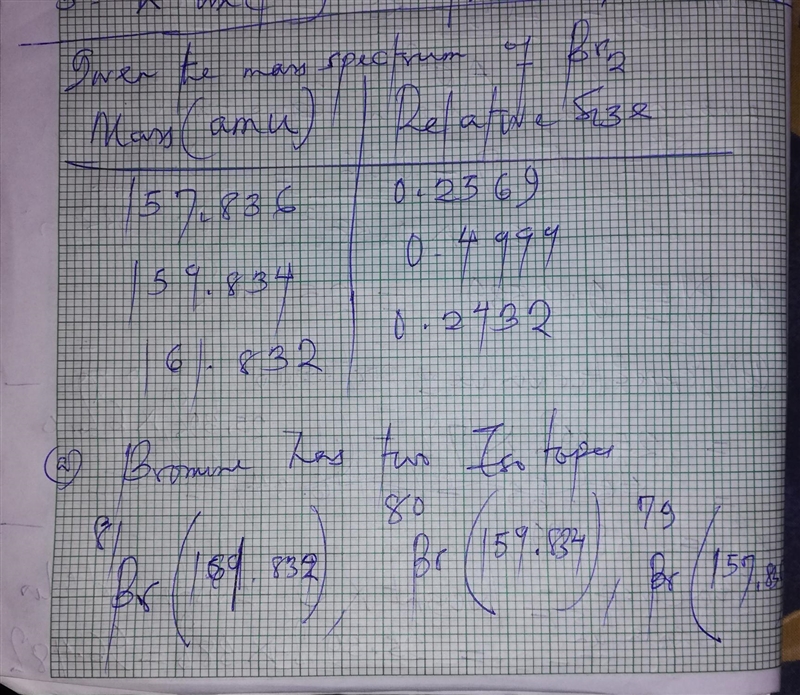 Given the mass spectrum of Br2
Mass (amu) Relative Size
157.836 0.2569
159.834 0.4999
161.832 0.2432
(a) Bromine has two Isotopes
81Br (161.832), 80Br (159.834), 79Br (157.83